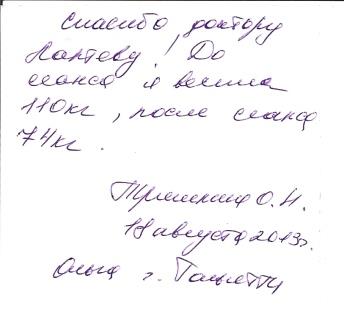 Спасибо доктору
Лаптеву! До
сеанса я весила
110 кг, после сеанса
74 кг.
О.Н.
18 августа 2013г.
Ольга г. Тольятти